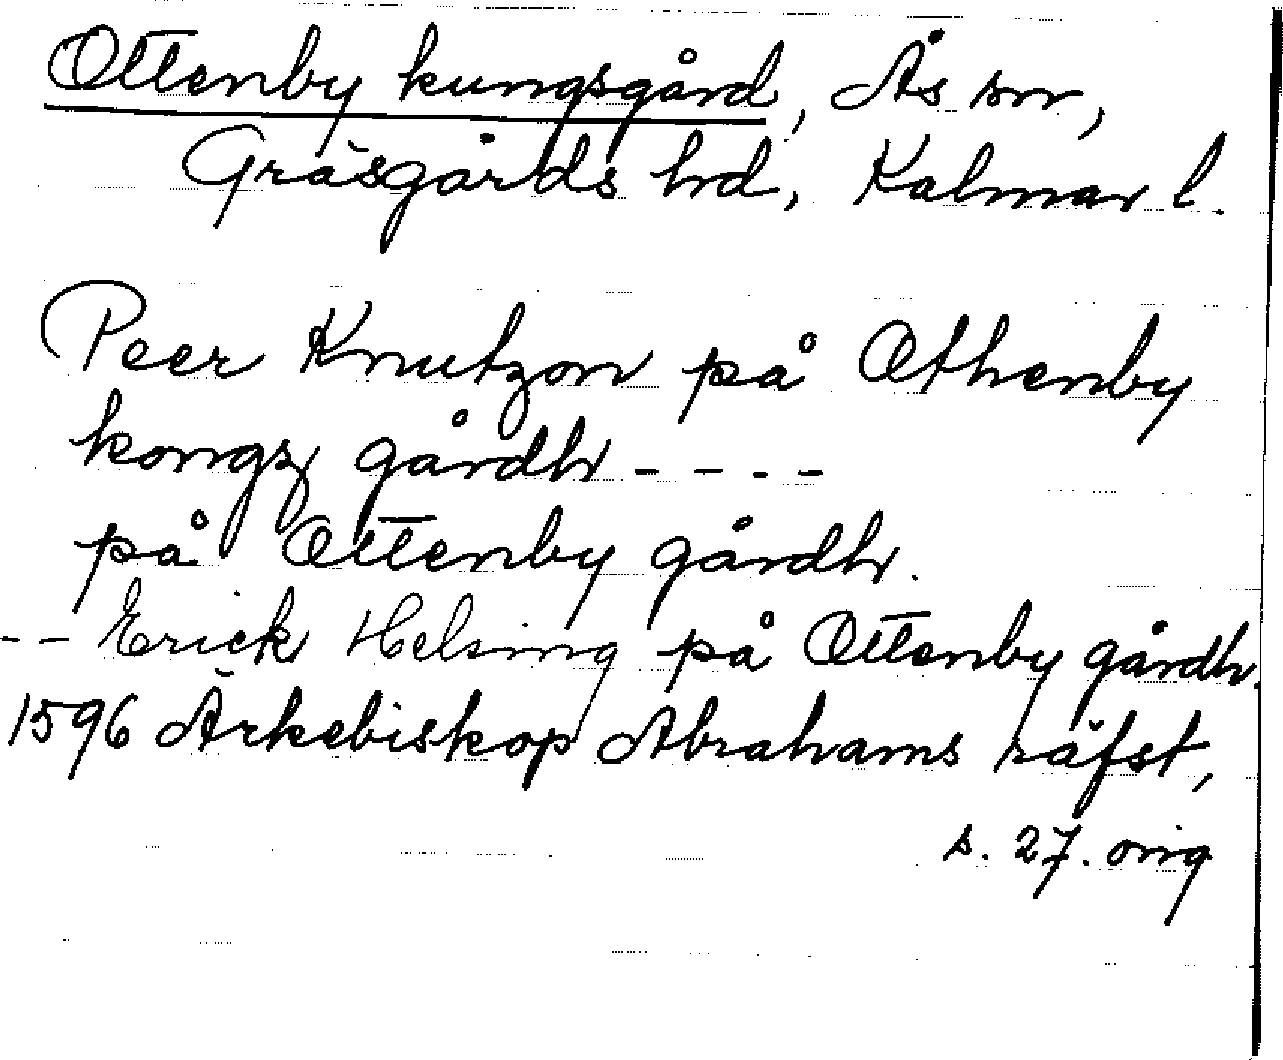 Ottenby kungsgård, Ås sn,
Gräsgårds hd, Kalmar l.
Peer Knutzon på Othenby
kongz gårdh - - - -
på Ottenby gårdh.
- - Erick Helsing på Ottenby gårdh.
1596 Ärkebiskop Abrahams räfst,
s. 27. orig